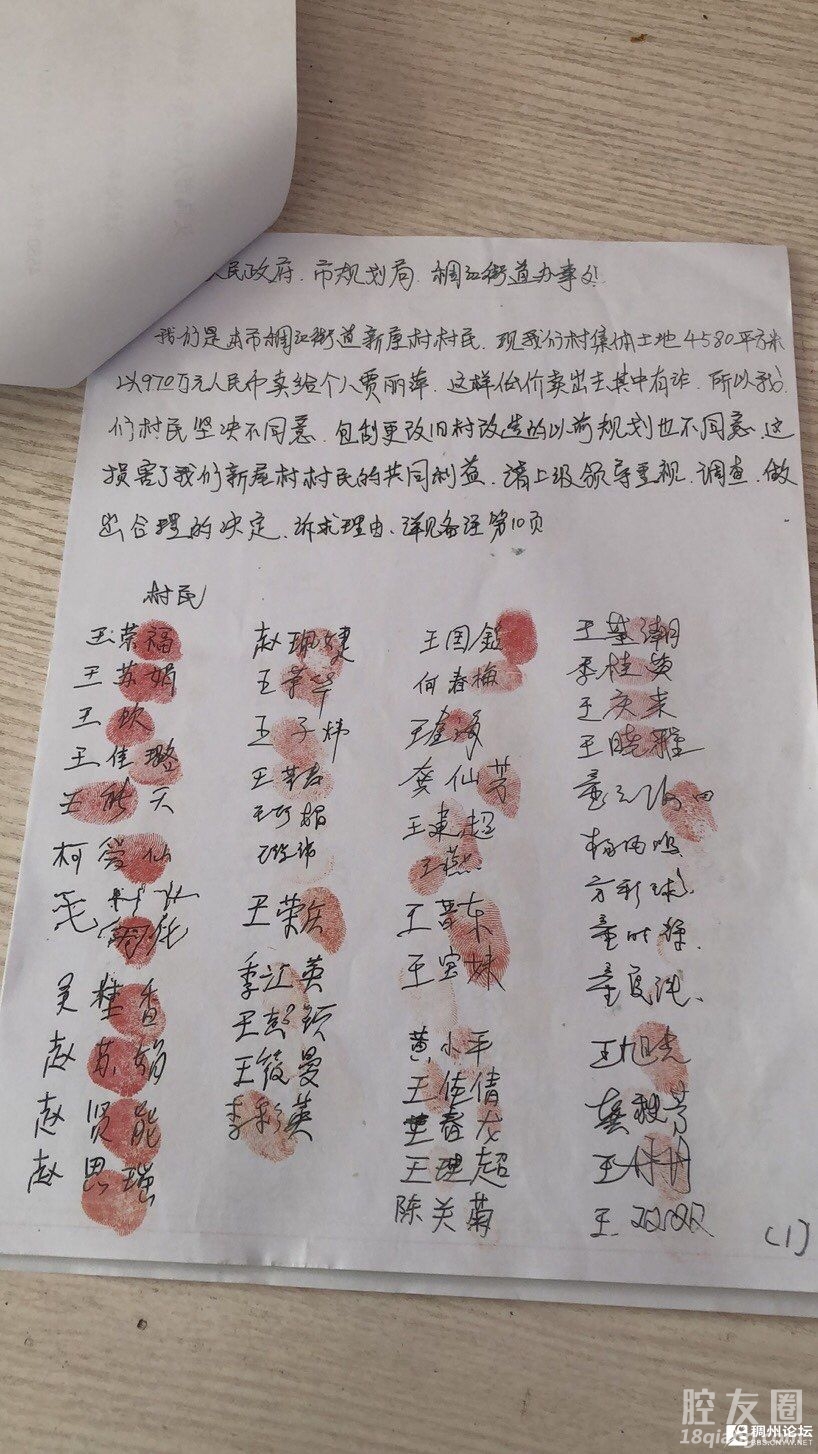 人民政府、市规划局、稠江街道办事处:
我们是本市稠江街道新屋村村民、现我们村集体土地4580平方米
以970万元人民币卖给个人贾丽萍、这样低价卖出去其中有诈、所以我
们村民坚决不同意、包制更改旧村改造的以前规划也不同意、这
损害了我们新屋村村民的共同利益、请上级领导重视、调查、做
出合理的决定、诉求理由、详见备注第10页
村民
王荣福 赵珮婕 王国
王苏娟 王荣华 何春梅 季桂黄
王坎 王子炜 王庆来
王佳璐 龚仙芳 王晓雅
王 天 王东超
柯爱仙 王燕
方彩球
王荣兵 王晋东
吴桂香 季江英 王宝妹
赵苏娟 王彭颖 黄小平 王旭亮
赵贤能 王筱曼 王佳倩 龚靓芳
赵思瑞 李彩英 王春龙 王丹丹
王理超
陈关菊 王双双
(1)
腔友圈
18qiang
稠州论坛
BBSIONYW.NET